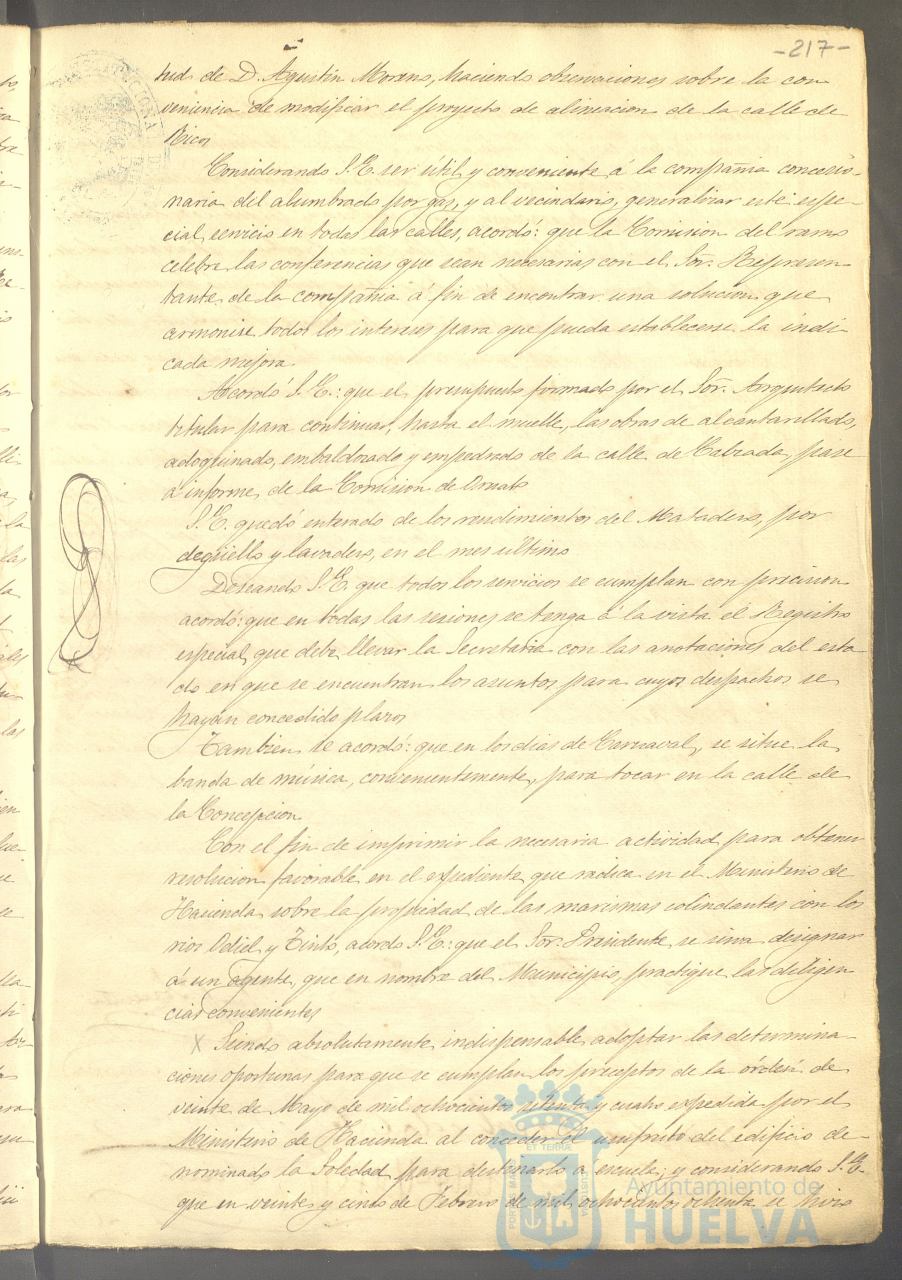 -217-
tud de D. Agustin Moreno, haciendo observaciones sobre la con
veniencia de modificar el proyecto de alineacion de la calle de
Ricos
Considerando S.E. ser útil y conveniente á la compañia concesio-
naria del alumbrado por gas, y al vecindario, generalizar este espe-
cial servicio en todas las calles, acordó: que la Comision del ramo
celebre las conferencias que sean necesarias con el Sor. Represen
tante de la compañia á fin de encontrar una solucion que
armonise todos los intereses para que pueda establecerse la indi-
cada mejora.
Acordó S.E.: que el presupuesto formado por el Sor. Arquitecto
titular para continuar, hasta el muelle, las obras de alcantarillado,
adoquinado, embaldozado y empedrado de la calle de Calzada, pase
á informe de la Comision de Ornato
S.E. quedó enterado de los rendimientos del Matadero, por
degüello y lavadero, en el mes último
Deseando S.E. que todos los servicios se cumplan con precision
acordó: que en todas las sesiones se tenga á la vista el Registro
especial que debe llevar la Secretaria con las anotaciones del esta
do en que se encuentran los asuntos para cuyos despachos se
hayan concedido plazos
Tambien se acordó: que en los dias de Carnaval, se situe la
banda de música, convenientemente, para tocar en la calle de
la Concepcion
Con el fin de imprimir la necesaria actividad para obtener
resolucion favorable en el expediente que radica en el Ministerio de
Hacienda sobre la propiedad de las marismas colindantes con los
rios Odiel y Tinto, acordo S.E.: que el Sor. Presidente, se sirva designar
á un agente, que en nombre del Municipio, practique las diligen
cias convenientes
X Siendo absolutamente indispensable adoptar las determina-
ciones oportunas para que se cumplan los preceptos de la órden de
veinte de Mayo de mil ochocientos setenta y cuatro expedida por el
Ministerio de Hacienda al conceder el usufruto del edificio de-
nominado la Soledad para destinarlo a escuela; y considerando S.E.
que en veinte y cinco de Febrero de mil ochocientos ochenta se hizo
Ayuntamiento de
HUELVA